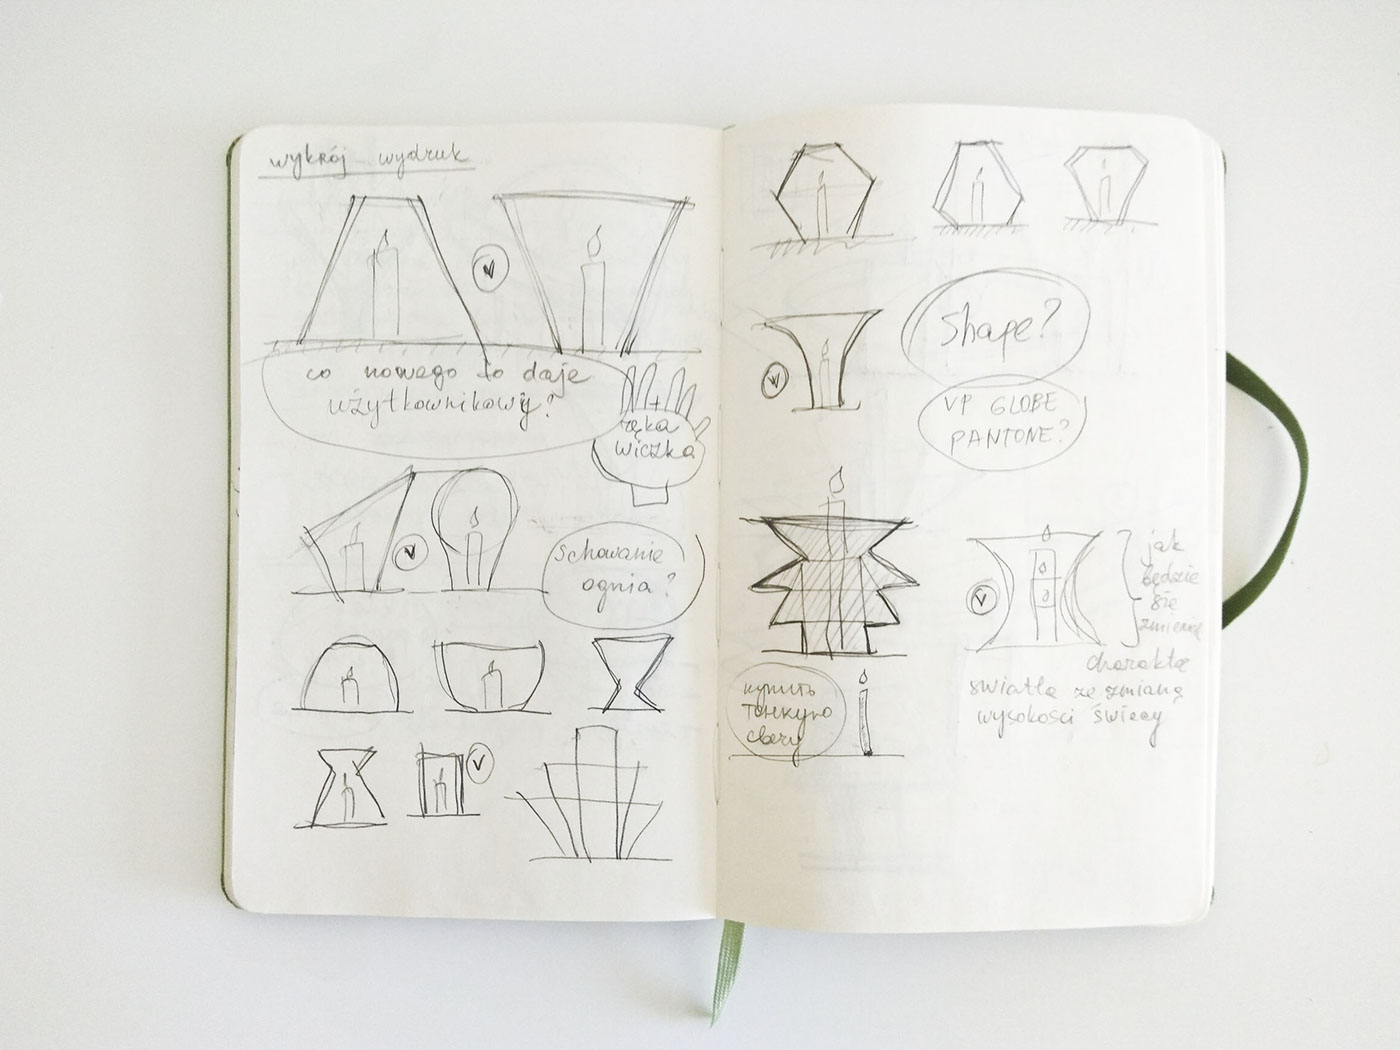 wykrój wydruk
co nowego to daje
użytkownikowi?
ręka
wiczka
schowanie
ognia?
Shape?
VP GLOBE
PANTONE?
jak
będzie
się
zmieniać
charakter
światła ze zmianą
wysokości świecy
купить
тонкую
свечу